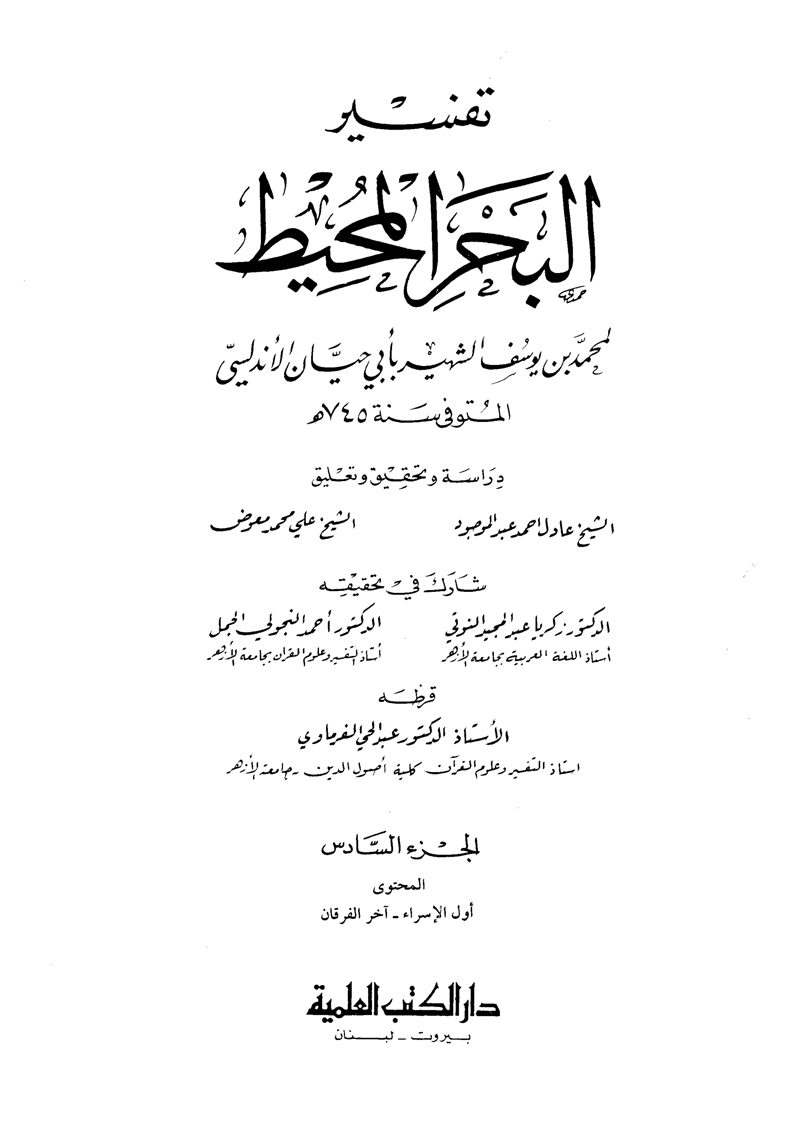 تفسير
البَحْرِ المُحِيْط
حمدي
لمحمدَّ بن يوسُف الشهير بأبي حيَّان الأندلسيّ
المتُوفى سَنة ٧٤٥هـ
دِرَاسَة وتحقِيْق وتعْليق
الشيخ عادل احمد عبد الموجود
الشيخ علي محمد معوض
شَاركَ في تحقيْقِه
الدكتور زكريا عبد المجيد النوقي
الدكتور أحمد النجولي الجمل
أستاذ اللغة العربية بجامعة الأزهر
أستاذ التفسير وعلوم القرآن بجامعة الأزهر
قرظَه
الأستاذ الدكتور عبد الحي الفرماوي
استاذ التفسير وعلوم القرآن كلية أصول الدين - جامعة الأزهر
الجُزء السَّادس
المحتوى
أول الإسراء - آخر الفرقان
دار الكتب العلمية
بيروت - لبنان